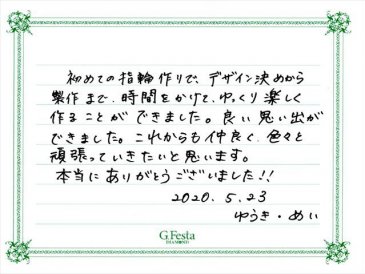 初めての指輪作りで、デザイン決めから
製作まで、時間をかけて、ゆっくり楽しく
作ることができました。良い思い出が
できました。これからも仲良く、色々と
頑張っていきたいと思います。
本当にありがとうございました!!
2020.5.23
ゆうき・めい
G.Festa
DIAMOND